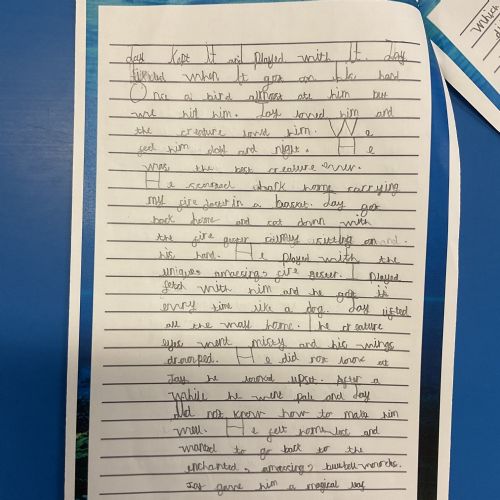 Jay kept It and Played with It. Jay
when It got on his hand
Once a bird almost ate him but
we hit him. Jay loved him and
the creature loved him. We
fed him day and night. He
was the best creature ever.
He back home carrying
my fire in a basket. Jay got
back home and sat down with
the fire sitting on and
his hand. He played with the
unique amazing fire I Played
fetch with him and he got it
every time like a dog. Jay
all the way home. The creature
eyes went misty and his wings
drooped. He did not look at
Jay he looked upset. After a
While he went pale and Jay
did not know how to make him
well. He felt home and
wanted to go back to the
enchanted, amazing,
Jay gave him a magical
Which